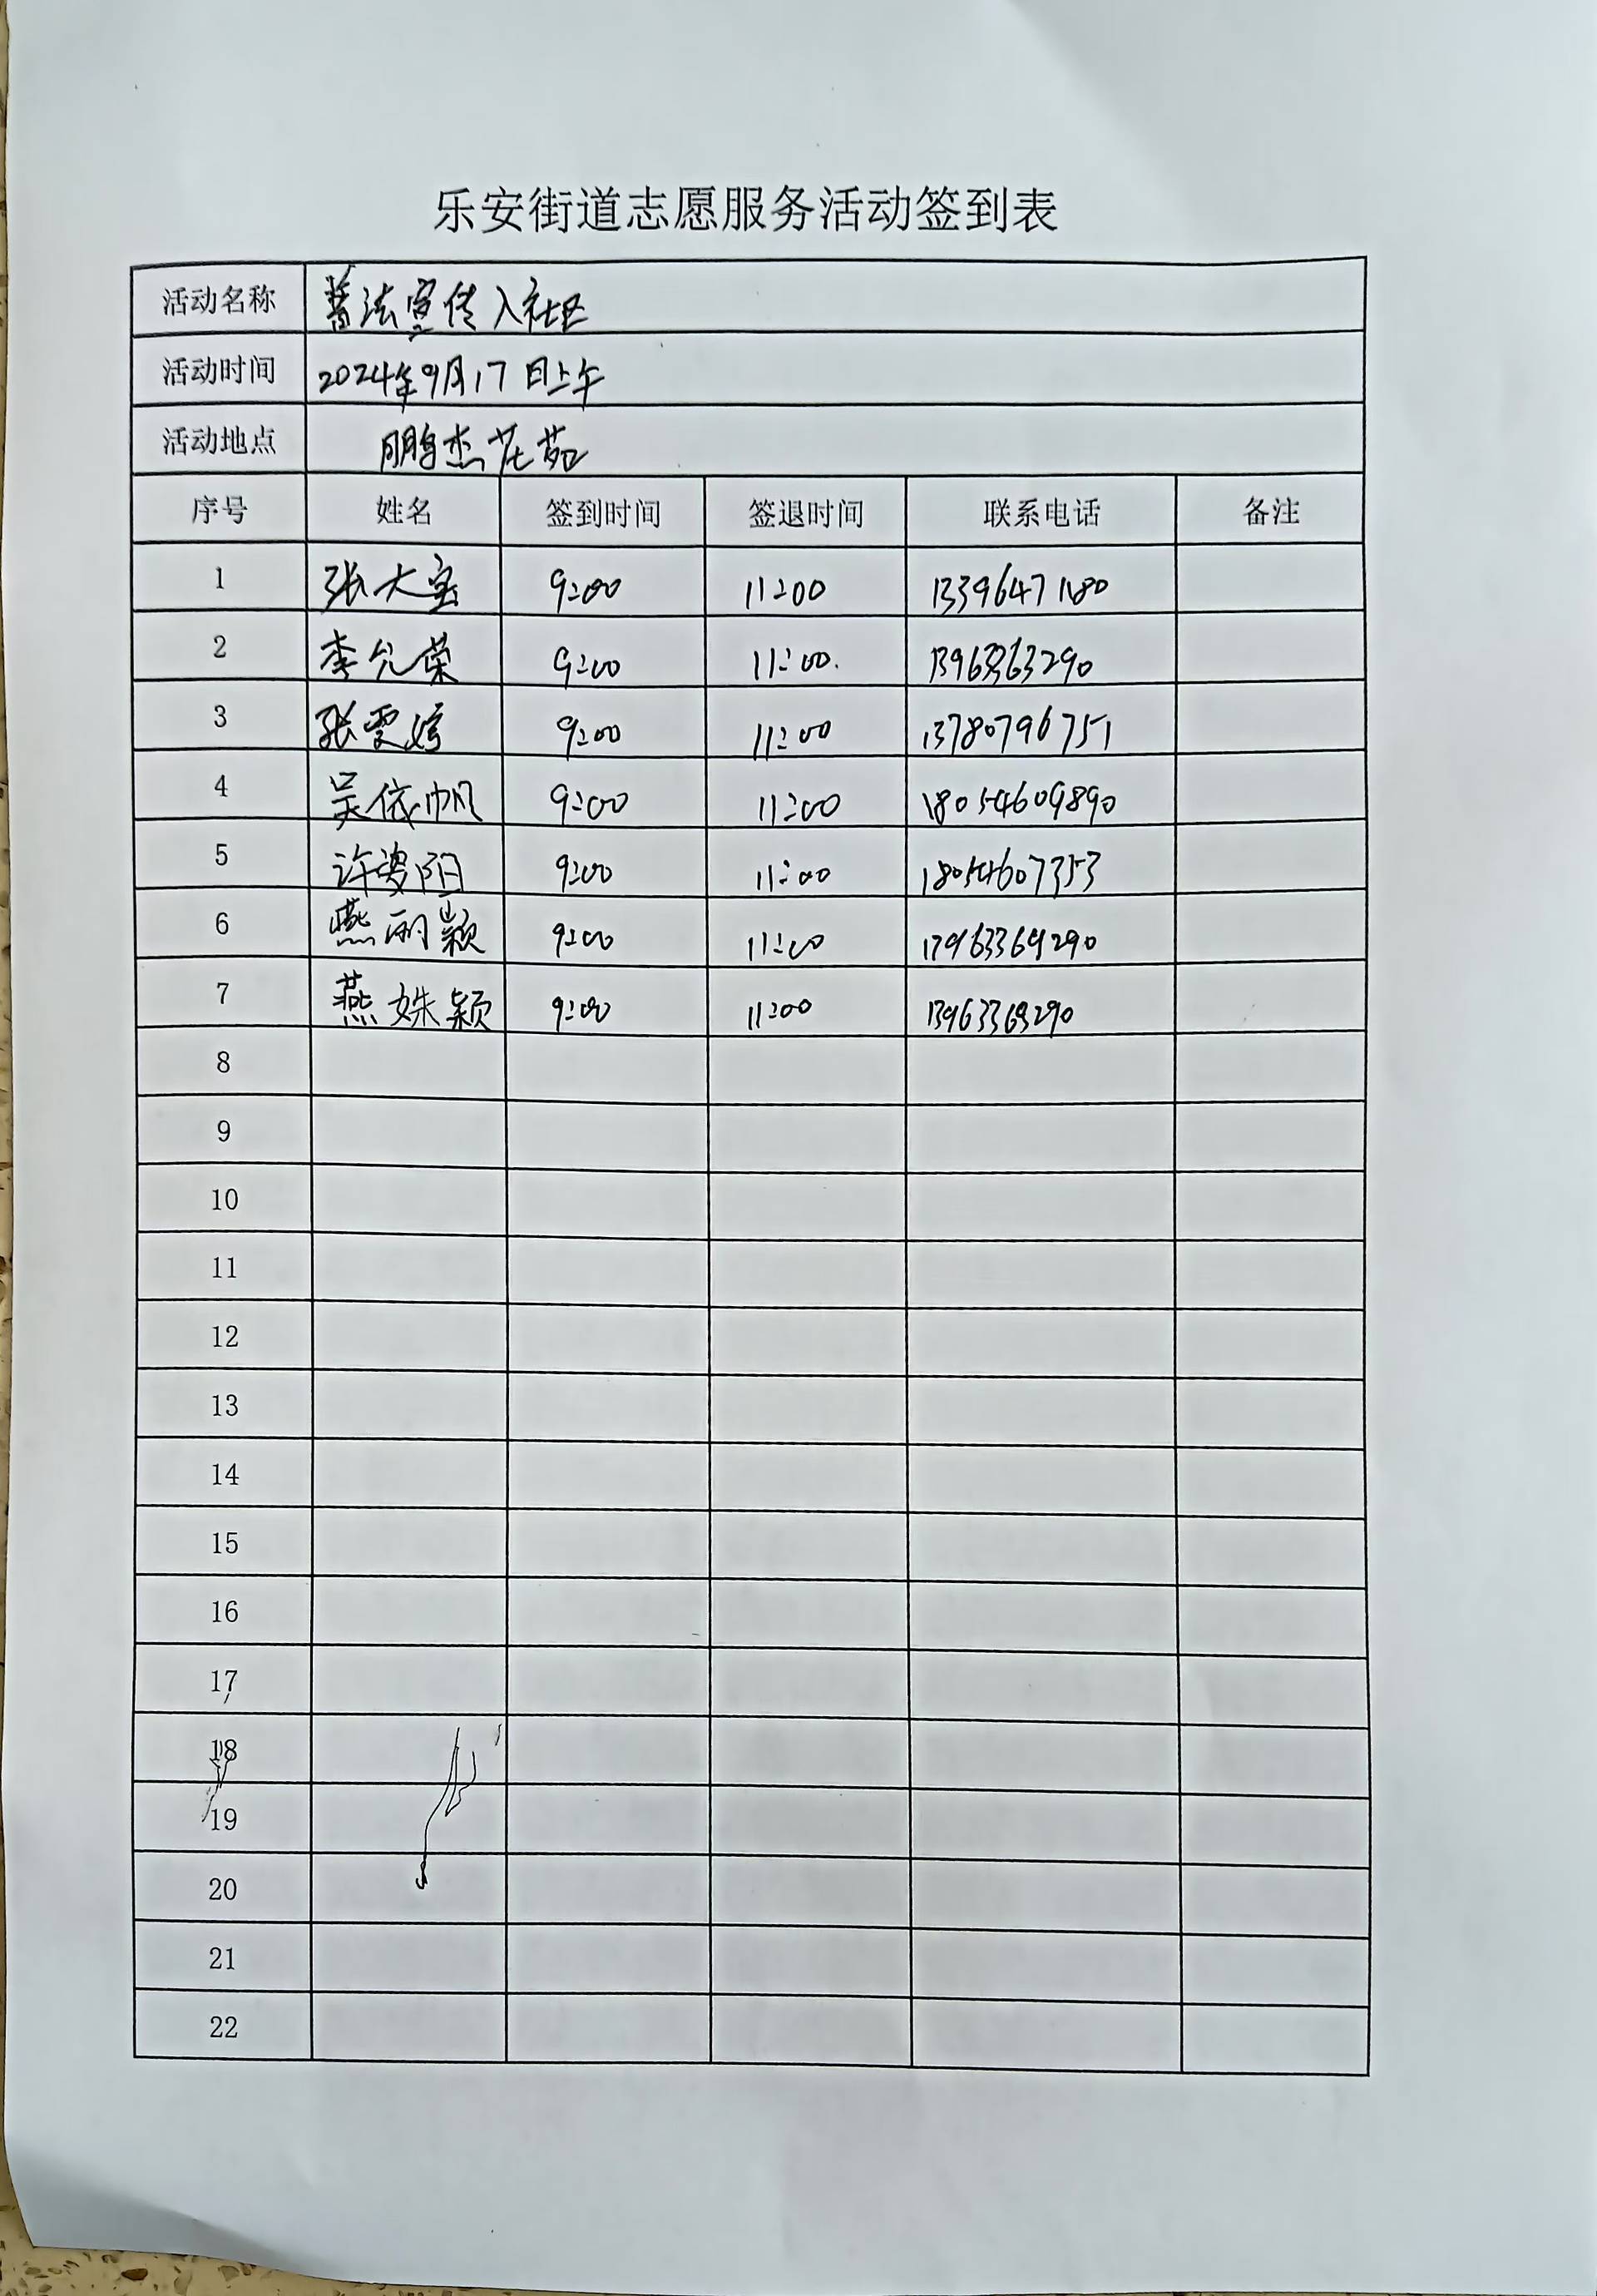 乐安街道志愿服务活动签到表
活动名称 普法宣传入社区
活动时间 2024年9月17日上午
活动地点 鹏杰花苑
序号 姓名 签到时间 签退时间 联系电话 备注
1 张大宝 9:00 11:00 13396471180
2 李允荣 9:00 11:00
3 张雯婷 9:00 11:00 13780796751
4 吴依帆 9:00 11:00 18054609890
5 许梦阳 9:00 11:00 18054607353
6 燕丽颖 9:00 11:00
7 燕姝颖 9:00 11:00 13963369290
8
9
10
11
12
13
14
15
16
17
18
19
20
21
22